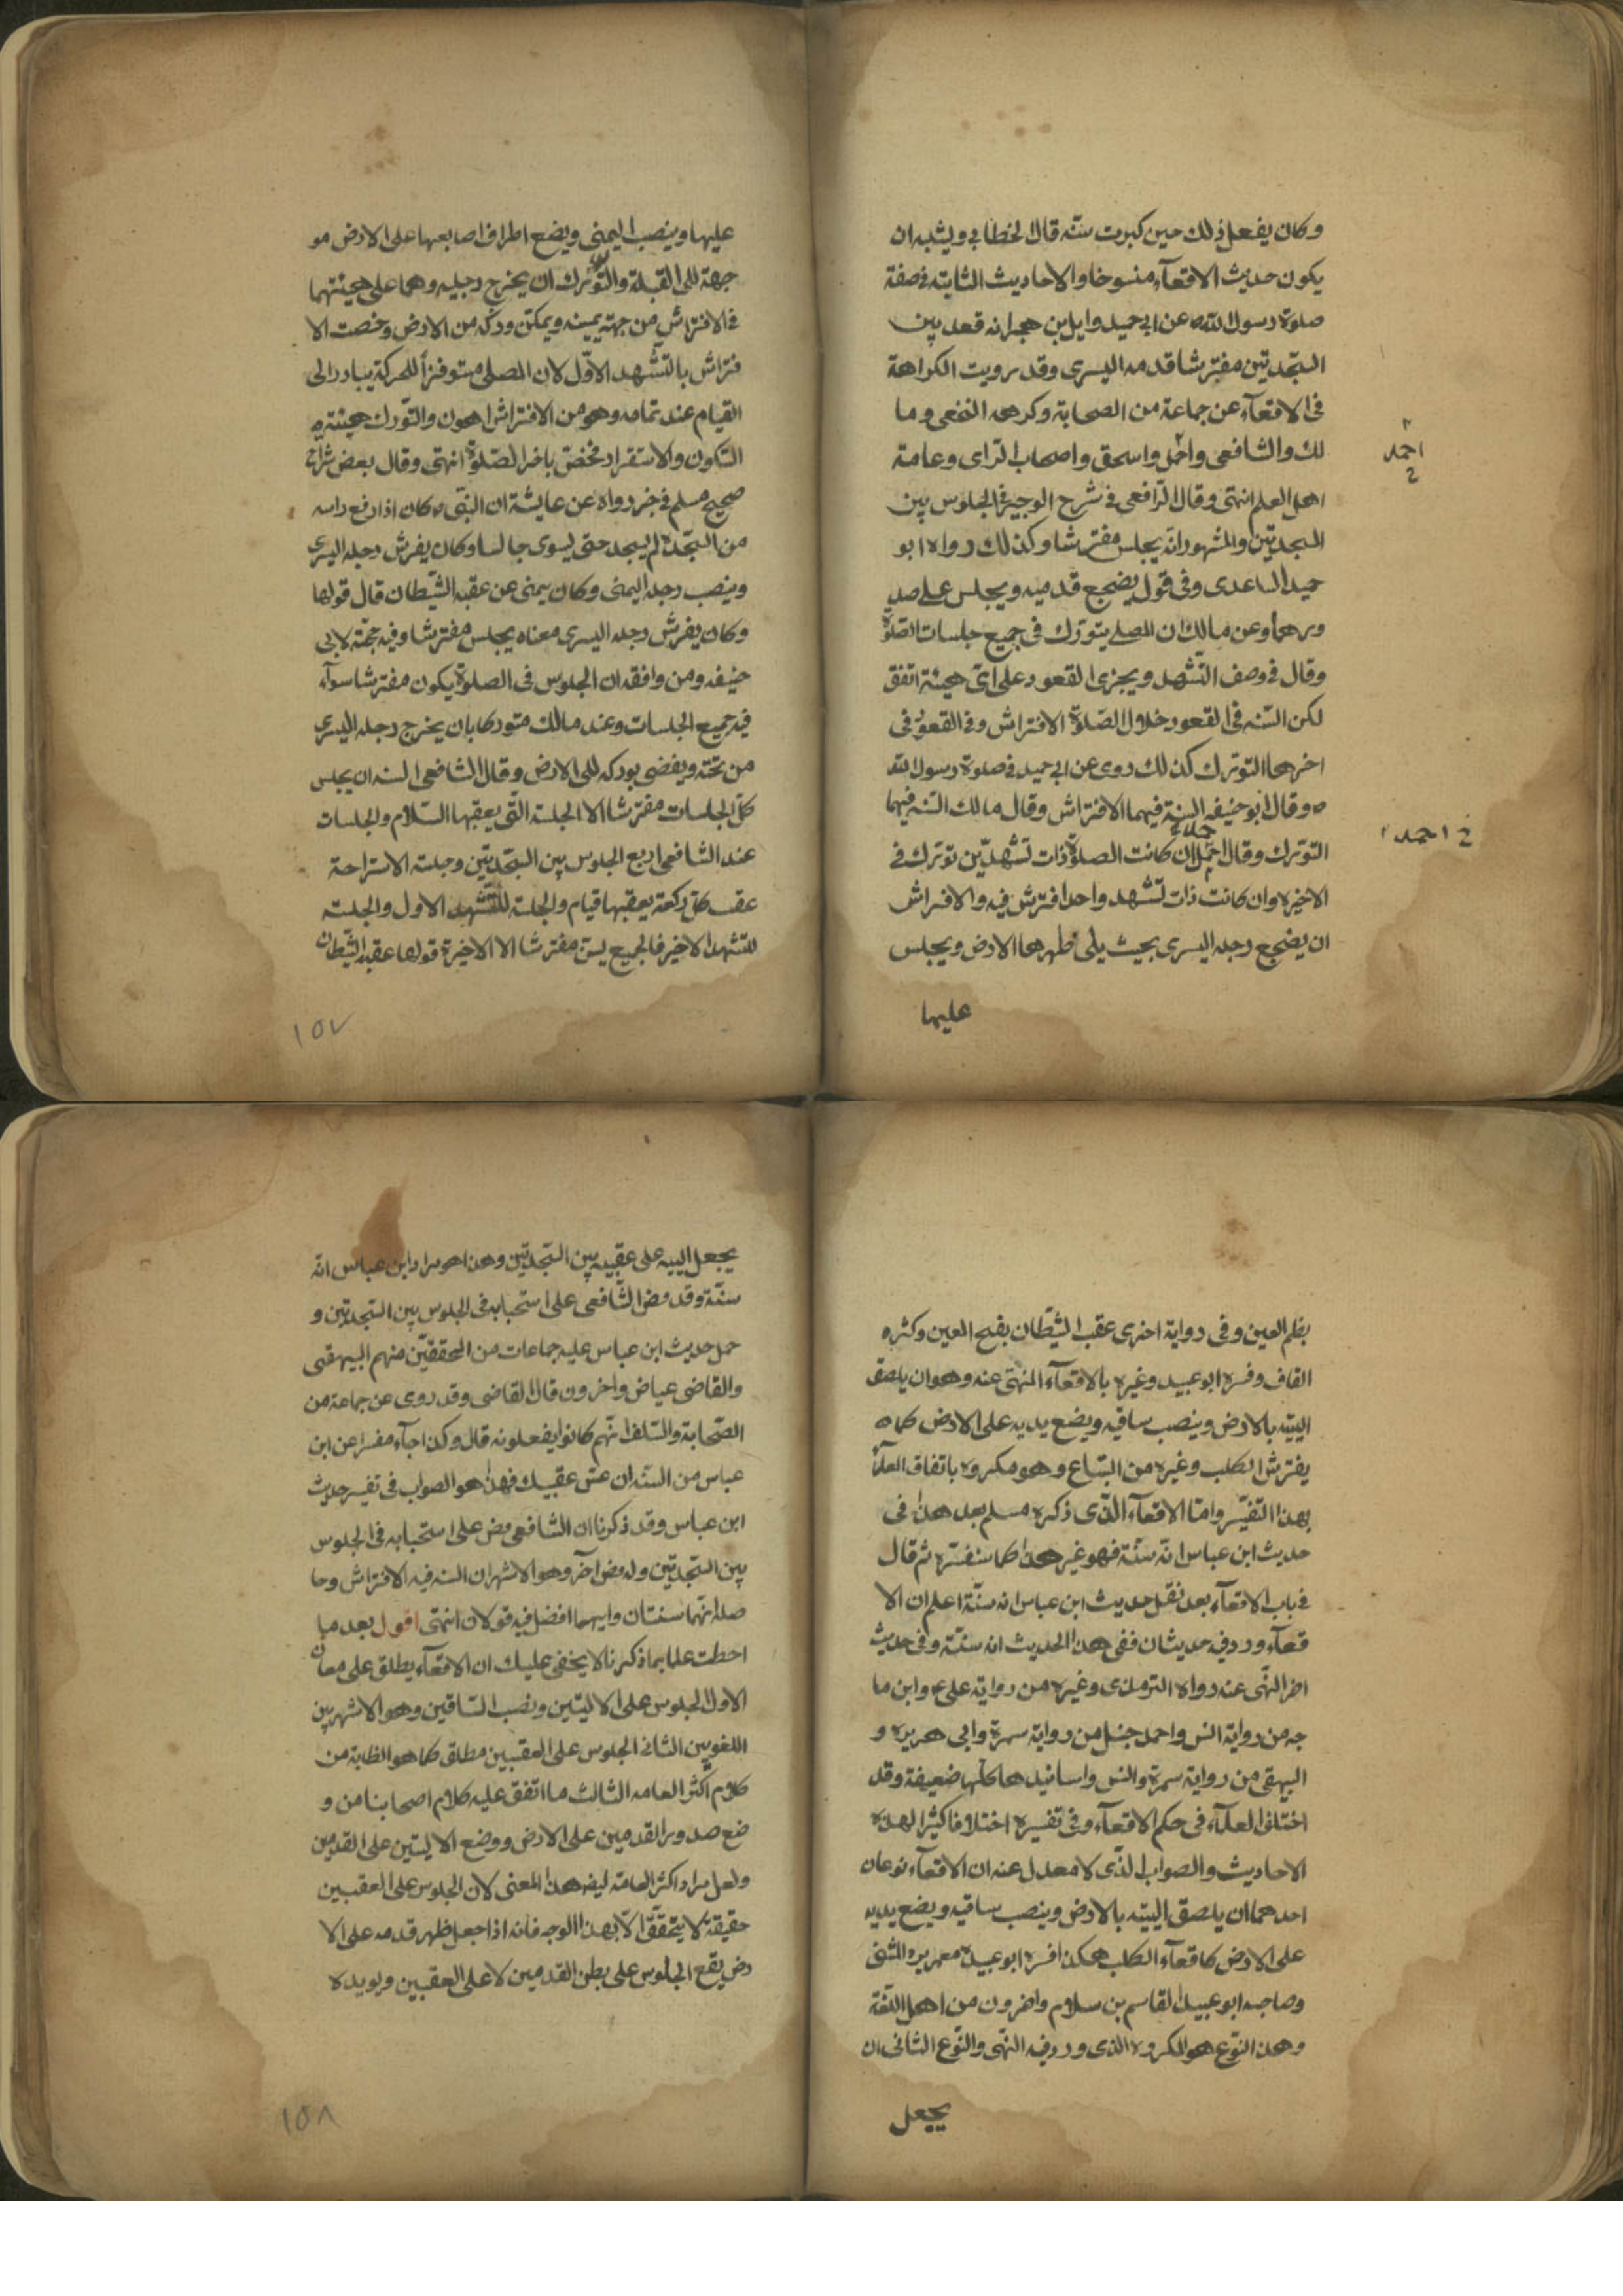 وكان يفعل ذلك حين كبرت سنّه قال الخطابي ويشبه ان
يكون حديث الاقعآء منسوخا والاحاديث الثابته في صفة
صلوة رسول الله ه عن ابي حميد وايل بن حجر انه قعد بين
السّجدتين مفترشا قدمه اليسرى وقد رويت الكراهة
في الاقعآء عن جماعة من الصحابة وكرهه النخعى وما
لك والشافعى واحمد واسحق واصحاب الراى وعامة
احمد
اهل العلم انتهى وقال الرّافعى في شرح الوجيز في الجلوس بين
السجدتين والمشهور انّه يجلس مفترشا وكذلك رواه ابو
حميد الساعدى وفى قول يضجع قدميه ويجلس على صد
ورهما وعن مالك ان المصلى يتورّك فى جميع جلسات الصّلوة
وقال في وصف التّشهد ويجزى القعود على اىّ هيئة اتفق
لكن السّنه فى القعود خلال الصّلوة الافتراش وفى القعود فى
اخرها التورّك كذلك روى عن ابي حميد في صلوة رسول الله
ه وقال ابو حنيفه السنة فيهما الافتراش وقال مالك السّنه فيهما
التورّك وقال احمد ان كانت الصلوة ذات تشهّدين تورّك فى
احمد
الاخيره وان كانت ذات تشهد واحد افترش فيه والافتراش
ان يضجع رجله اليسرى بحيث يلى ظهرها الارض ويجلس
عليها
عليها وينصب اليمنى ويضع اطراف اصابعها على الارض مو
جهة الى القبلة والتورّك ان يخرج رجليه وهما على هيئتهما
فى الافتراش من جهة يمينه ويمكّن وركه من الارض وخصت الا
فتراش بالتشّهد الاوّل لان المصلى مستوفزاً للحركة يبادر الى
القيام عند تمامه وهو من الافتراش اهون والتّورك هيئته
السّكون والاستقرار فخصّ باخر الصّلوة انتهى وقال بعض شراح
صحيح مسلم في خبر رواه عن عايشة ان النبّى ه كان اذا رفع راسه
من السّجدة لم يسجد حتى يسوى جالسا وكان يفرش رجله اليسرى
وينصب رجله اليمنى وكان ينهى عن عقبه الشّيطان قال قولها
وكان يفرش رجله اليسرى معناه يجلس مفترشا وفيه حجّة لابى
حنيفه ومن وافقه ان الجلوس فى الصلوة يكون مفترشا سوآء
فيه جميع الجلسات وعند مالك متوركا بان يخرج رجله اليسرى
من تحته ويفضى بوركه الى الارض وقال الشافعى السنه ان يجلس
كلّ الجلسات مفترشا الا الجلسة التّى يعقبها السّلام والجلسات
عند الشافعى اربع الجلوس بين السّجدتين وجلسة الاستراحة
عقب كلّ ركعة يعقبها قيام والجلسة للتّشهد الاول والجلسة
للتشهد الاخير فالجميع يسنّ مفترشا الا الاخيرة قولها عقبه الشّيطان
١٥٧
بضم العين وفى رواية اخرى عقب الشّيطان بفتح العين وكسره
القاف وفسره ابو عبيد وغيره بالاقعآء المنهّى عنه وهو ان يلصق
الييّه بالارض وينصب ساقيه ويضع يديه على الارض كما
يفترش الكلب وغيره من السّباع وهو مكروه باتفاق العلمآء
بهذا التفسّير وامّا الاقعآء الّذى ذكره مسلم بعد هذا فى
حديث ابن عباس انّه سنّة فهو غير هذا كما سنفسّره ثم قال
فى باب الاقعآء بعد نقل حديث ابن عباس انه سنّة اعلم ان الا
قعآء ورد فيه حديثان ففى هذا الحديث انه سنّة وفى حديث
اخر النهّى عنه رواه الترمذى وغيره من رواية علىّ ع وابن ما
جه من رواية انس واحمد حنبل من رواية سمرة وابى هريره و
البيهقى من رواية سمرة وانس واسانيدها كلّها ضعيفة وقد
اختلف العلمآء فى حكم الاقعآء وفى تفسيره اختلافا كثيرا لهذه
الاحاديث والصواب الّذى لا معدل عنه ان الاقعآء نوعان
احدهما ان يلصق الييّه بالارض وينصب ساقيه ويضع يديه
على الارض كاقعآء الكلب هكذا فسره ابو عبيدة معمر بن المثنى
وصاحبه ابو عبيد القاسم بن سلام واخرون من اهل اللغة
وهذا النوّع هو المكروه الذى ورد فيه النهّى والنّوع الثانى ان
يجعل
يجعل الييه على عقبيه بين السّجدتين وهذا هو مراد ابن عباس انّه
سنّة وقد نص الشّافعى على استحبابه فى الجلوس بين السّجدتين و
حمل حديث ابن عباس عليه جماعات من المحققّين منهم البيهقى
والقاضى عياض واخرون قال القاضى وقد روى عن جماعة من
الصّحابة والسّلف انّهم كانوا يفعلونه قال وكذا جآء مفسرا عن ابن
عباس من السنّه ان تمسّ عقبيك فهذا هو الصواب فى تفسير حديث
ابن عباس وقد ذكرنا ان الشافعى نص على استحبابه فى الجلوس
بين السّجدتين وله نص آخر وهو الاشهر ان السنه فيه الافتراش وحا
صله انّهما سنتان وايهما افضل فيه قولان انتهى اقول بعد ما
احطت علما بما ذكرنا لا يخفى عليك ان الاقعآء يطلق على معان
الاول الجلوس على الاليتين ونصب السّاقين وهو الاشهر بين
اللغويين الثانى الجلوس على العقبين مطلق كما هو الظاهر من
كلام اكثر العامه الثالث ما اتفق عليه كلام اصحابنا من و
ضع صدور القدمين على الارض ووضع الاليتين على القدمين
ولعل مراد اكثر العامّة ايضا هذا المعنى لان الجلوس على العقبين
حقيقة لا يتحقّق الاّ بهذا الوجه فانه اذا جعل ظهر قدمه على الا
رض يقع الجلوس على بطن القدمين لا على العقبين ويويده
١٥٨